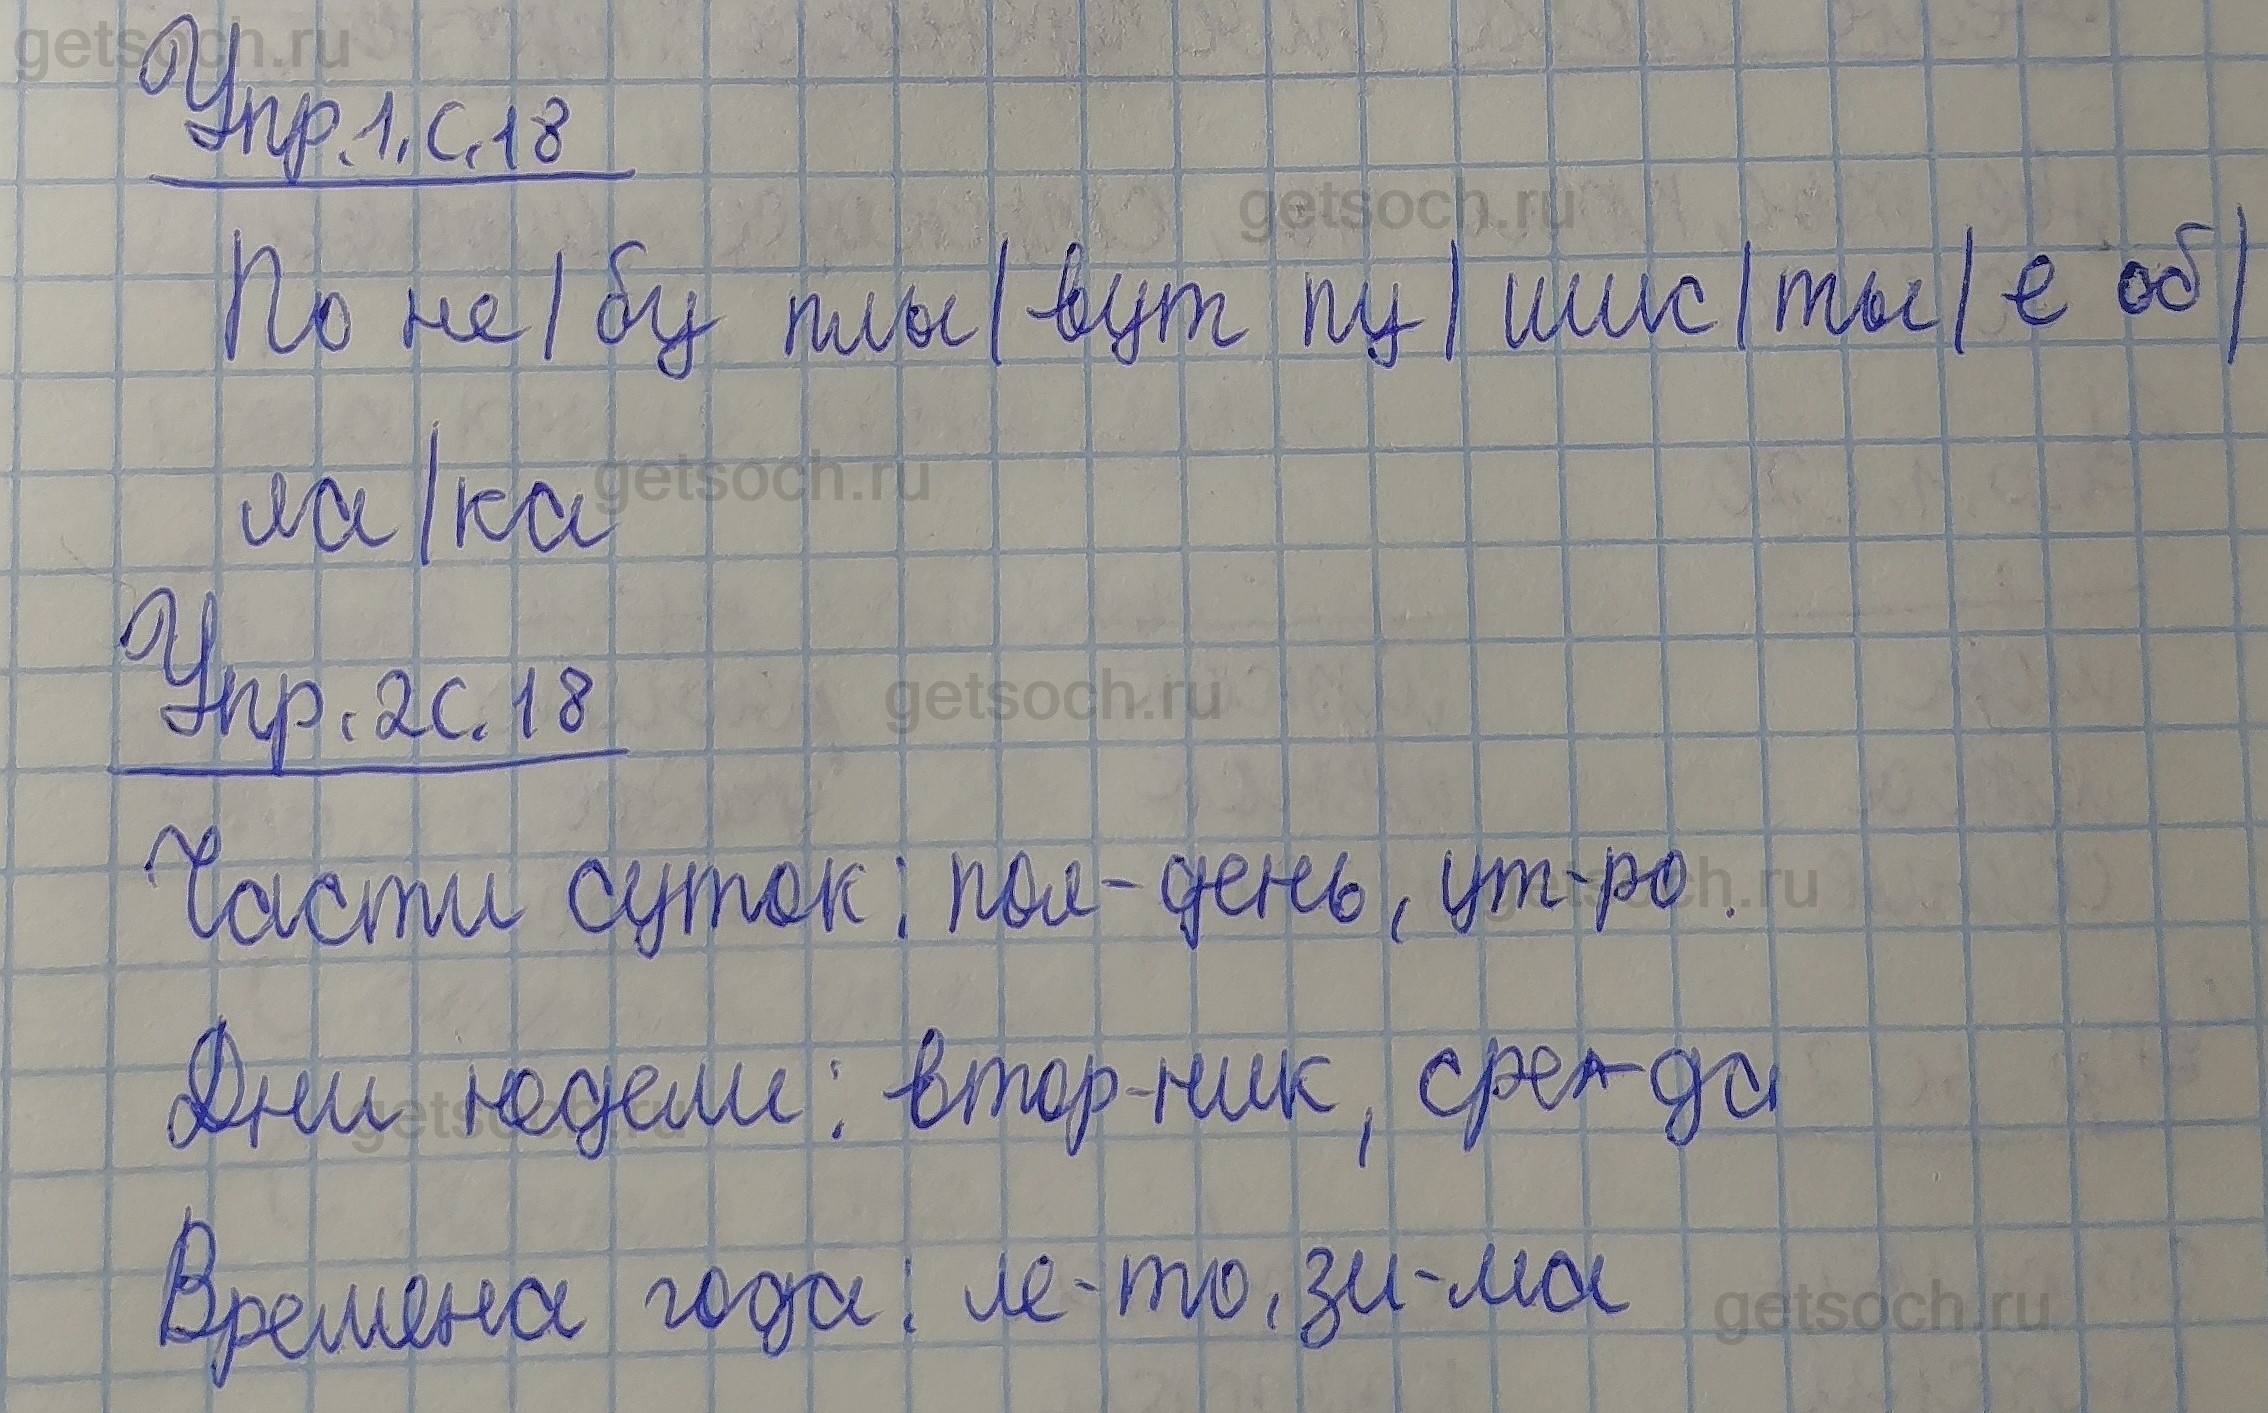 getsoch.ru
Упр.1.с.18
getsoch.ru
По не|бу плы|вут пу|шис|ты|е об|
ла|ка
getsoch.ru
Упр.2с.18
getsoch.ru
Части суток: пол-день, ут-ро.
getsoch.ru
Дни недели: втор-ник, сре-да
getsoch.ru
Времена года: ле-то, зи-ма
getsoch.ru